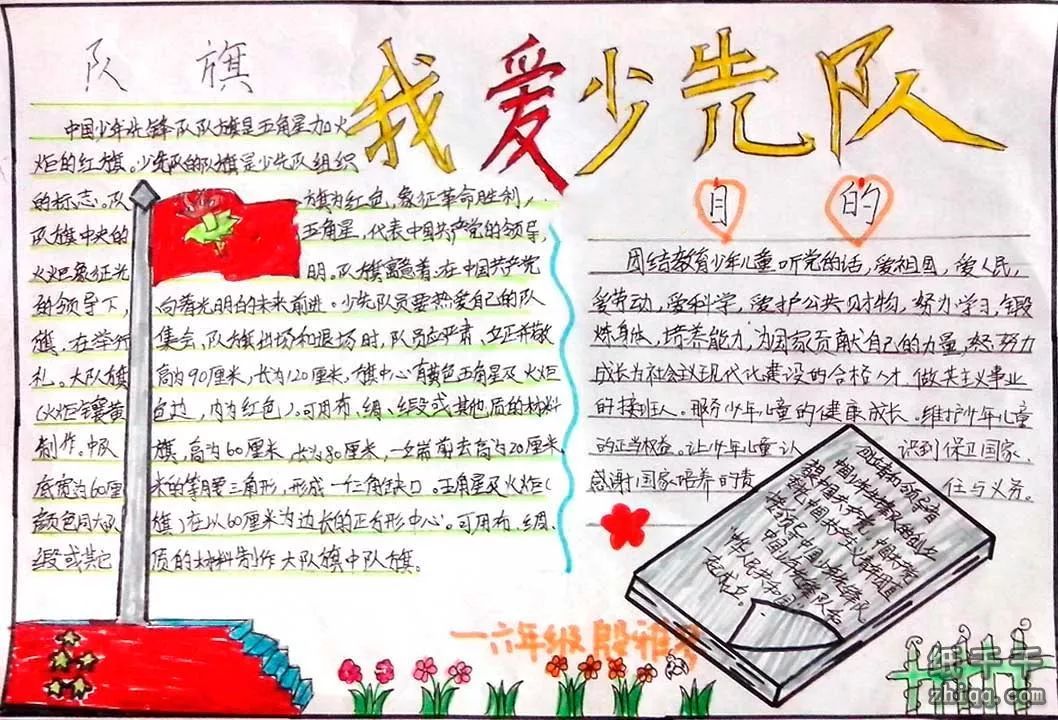 我爱少先队
队 旗
中国少年先锋队队旗是五角星加火
炬的红旗。少先队的队旗是少先队组织
的标志。队旗为红色,象征革命胜利,
队旗中央的五角星,代表中国共产党的领导,
火炬象征光明。队旗寓意着:在中国共产党
的领导下,向着光明的未来前进。少先队员要热爱自己的队
旗。在举行集会、队旗出场和退场时,队员应严肃、立正并敬
礼。大队旗高为90厘米,长为120厘米,旗中心有黄色五角星及火炬
(火炬镶黄色边,内为红色)。可用布、绸、缎或其他质的材料
制作。中队旗,高为60厘米,长为80厘米,一立端剪去高为20厘米
底宽为60厘米的等腰三角形,形成一个三角缺口。五角星及火炬(
颜色同大队旗)在以60厘米为边长的正方形中心。可用布、绸、
缎或其它质的材料制作大队旗中队旗。
目 的
团结教育少年儿童听党的话,爱祖国,爱人民,
爱劳动,爱科学,爱护公共财物,努力学习,锻
炼身体,培养能力,为国家贡献自己的力量,努力
成长为社会主义现代化建设的合格人才,做共主义事业
的接班人。服务少年儿童的健康成长。维护少年儿童
的正当权益。让少年儿童认识到保卫国家、
感谢国家培养的责任与义务。
创建者和领导者
中国少年先锋队的创立
者是中国共产党,中国共产党
委托中国共产主义青年团
直接领导中国少年先锋队
中国少年先锋队和
中华人民共和国
一起成立。
一六年级 殷雅
纸牛牛
zhiqq.com